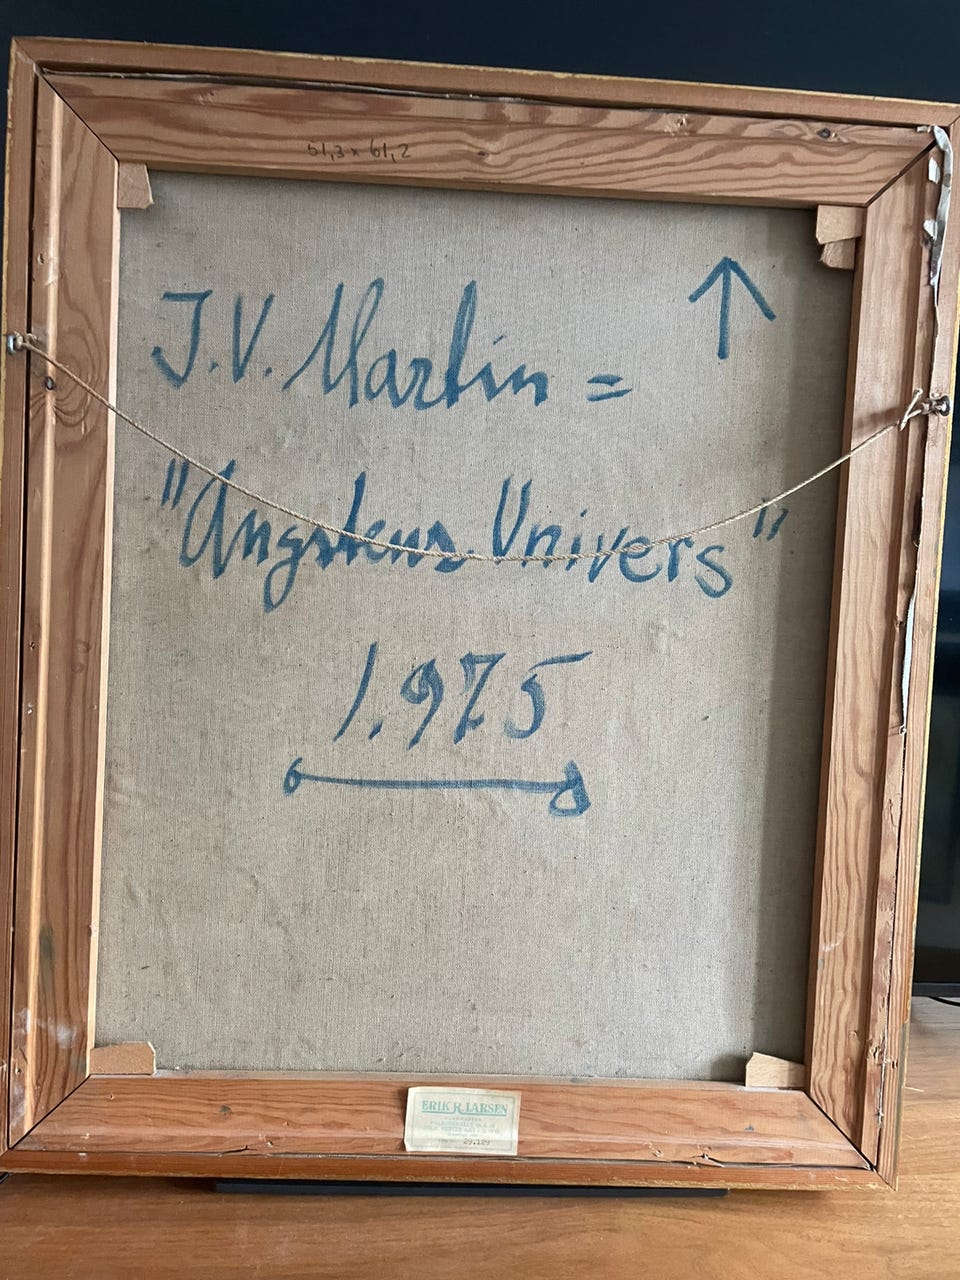 51,3 x 61,2
J.V. Martin =
"Angstens Univers"
1.975
ERIK R. LARSEN
29.129